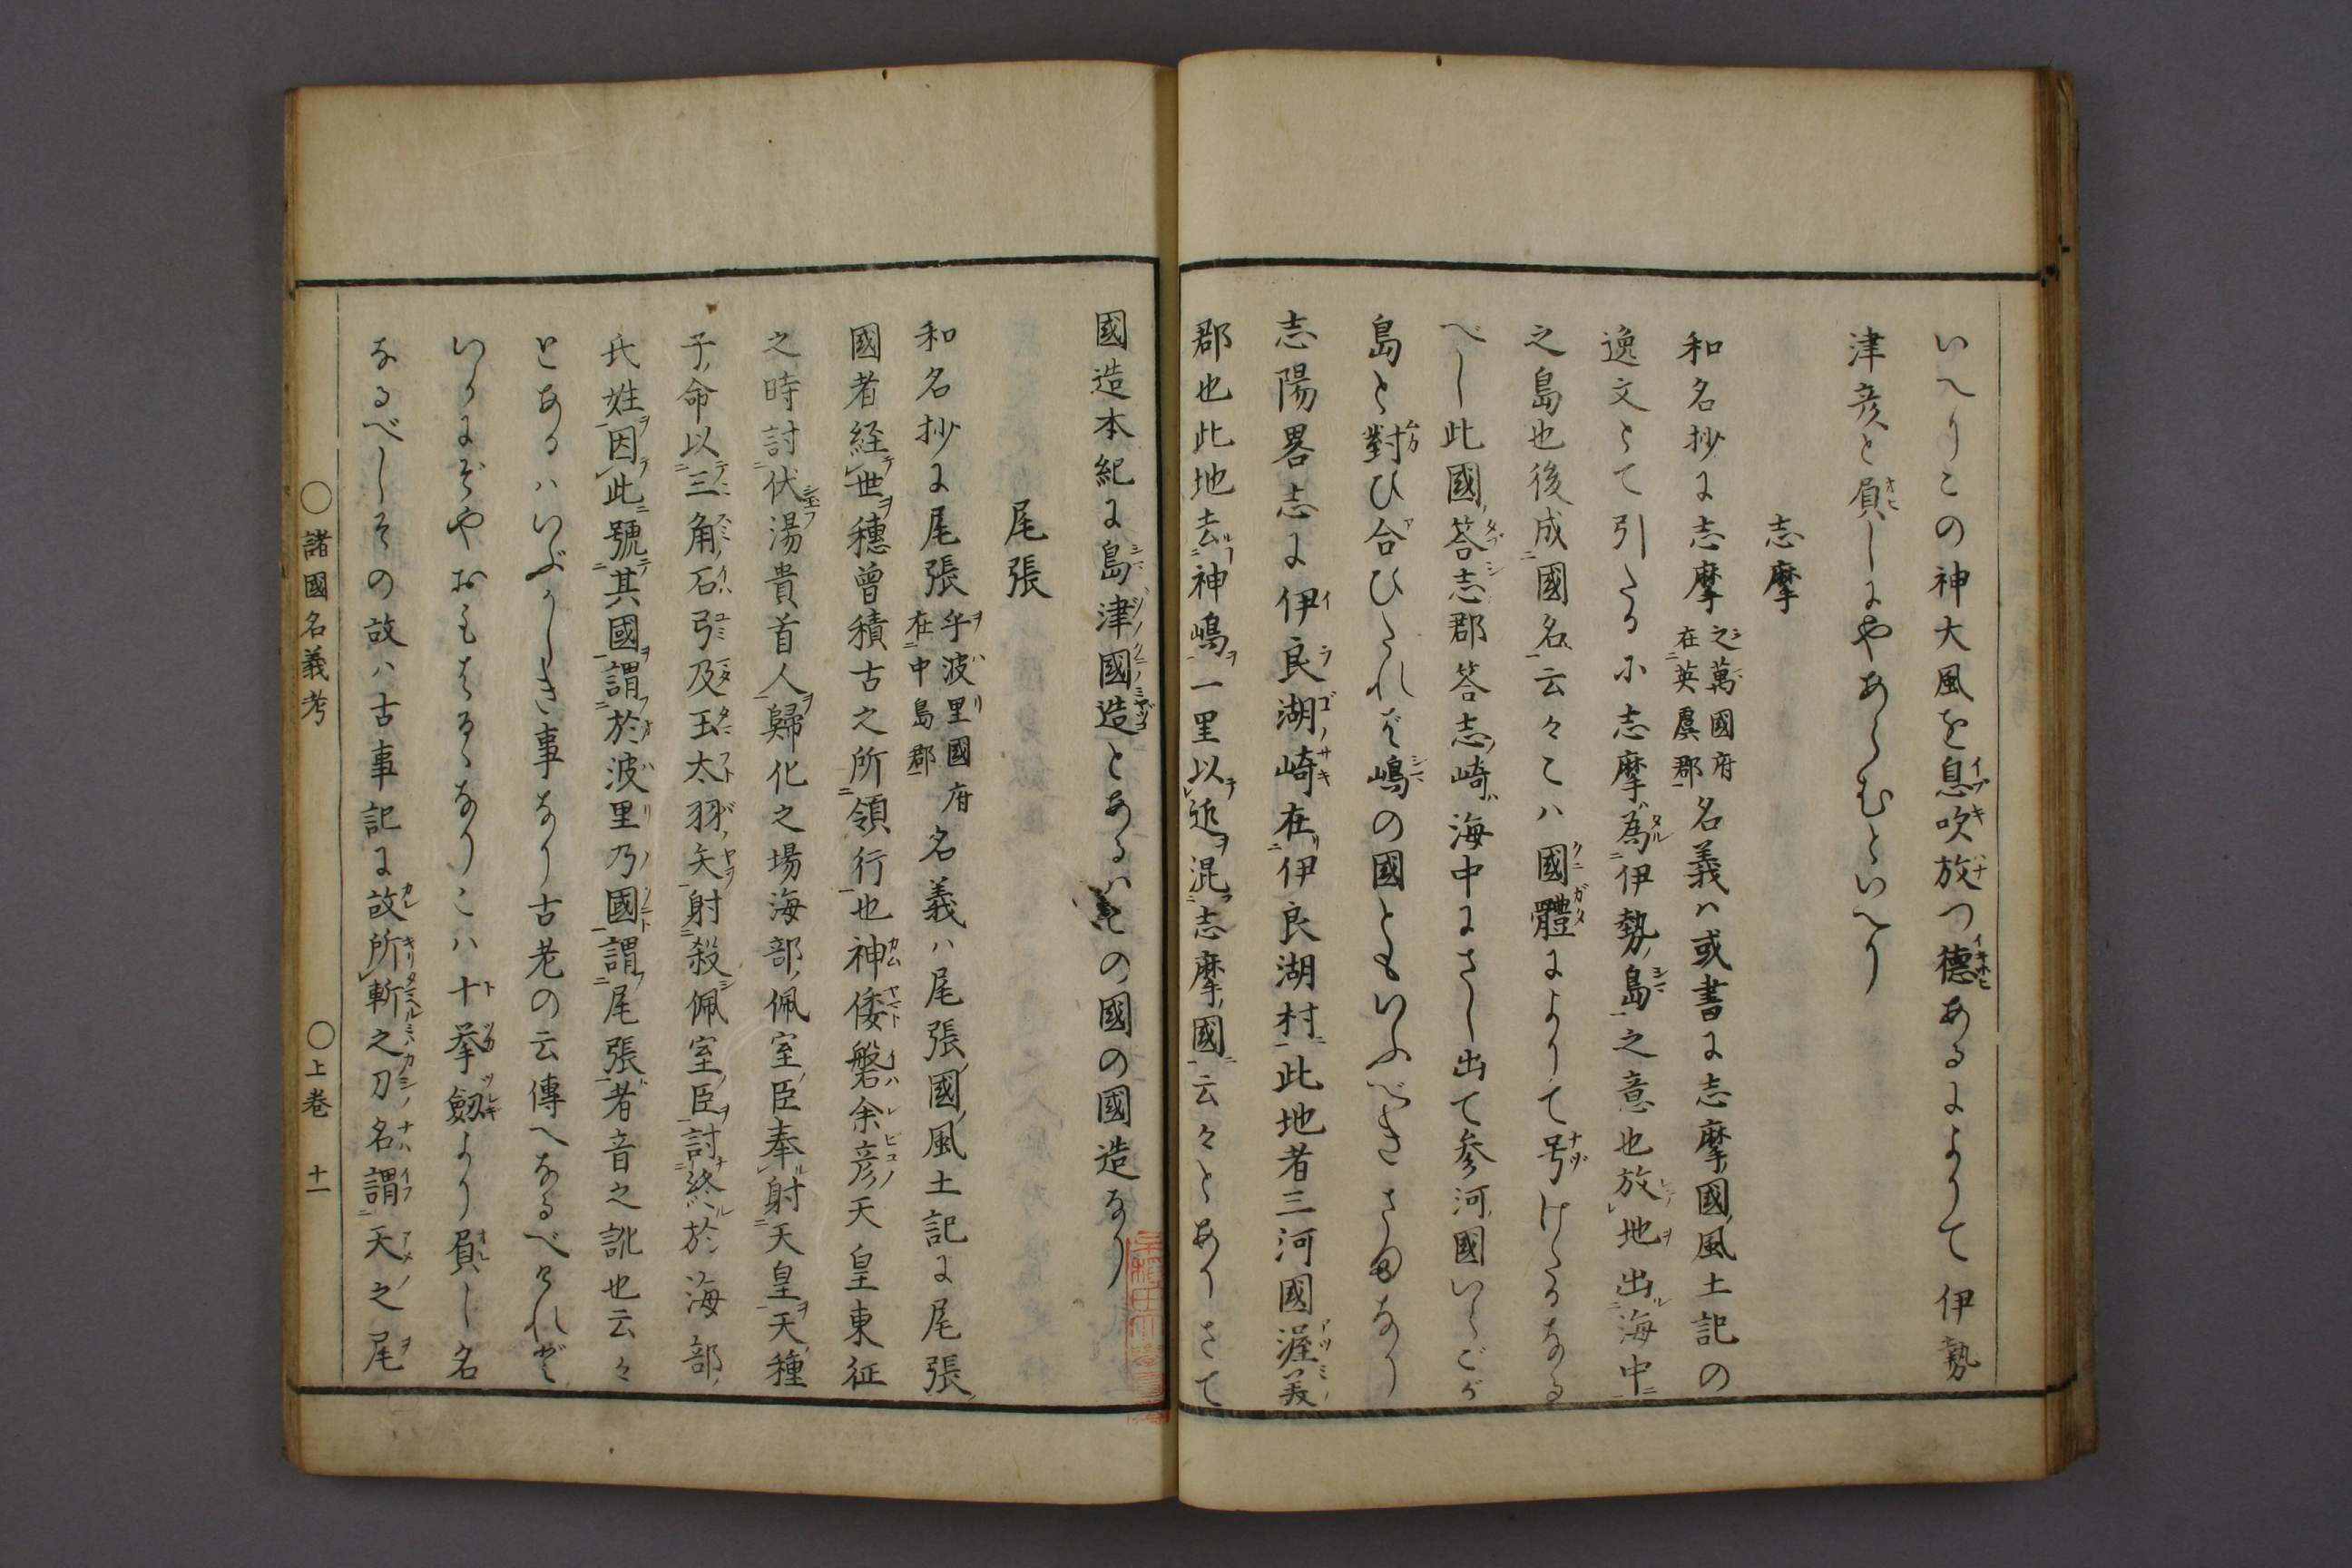 いへりこの神大風を息吹放つ德あるによりて伊勢
津彦と負しにやあらむといへり
志摩
和名抄に志摩之萬國府在英虞郡名義ハ或書に志摩國風土記の
逸文とて引たる小志摩爲伊勢島之意也放地出海中
之島也後成國名云々こハ國體によりて号けたるなる
べし此國答志郡答志崎海中にさし出て参河國いらごが
島と對ひ合ひたれば嶋の國ともいふべきさまなり
志陽畧志に伊良湖崎在伊良湖村此地者三河國渥美
郡也此地去神嶋一里以近混志摩國云々とありさて
國造本紀に島津國造とあるハその國の國造なり
尾張
和名抄に尾張乎波里國府在中島郡名義ハ尾張國風土記に尾張
國者経世穗曽積古之所領行也神倭磐余彦天皇東征
之時討伏湯貴首人歸化之場海部佩室臣奉射天皇天種
子命以三角石弓及玉太羽矢射殺佩室臣討終於海部
氏姓因此號其國謂於波里乃國謂尾張者音之訛也云々
とあるハいぶかしき事なり古老の云傳へなるべけれど
いかにぞやおもはるゝなりこハ十拳劔より負し名
なるべしその故ハ古事記に故所斬之刀名謂天之尾
○諸國名義考 ○上巻 十一